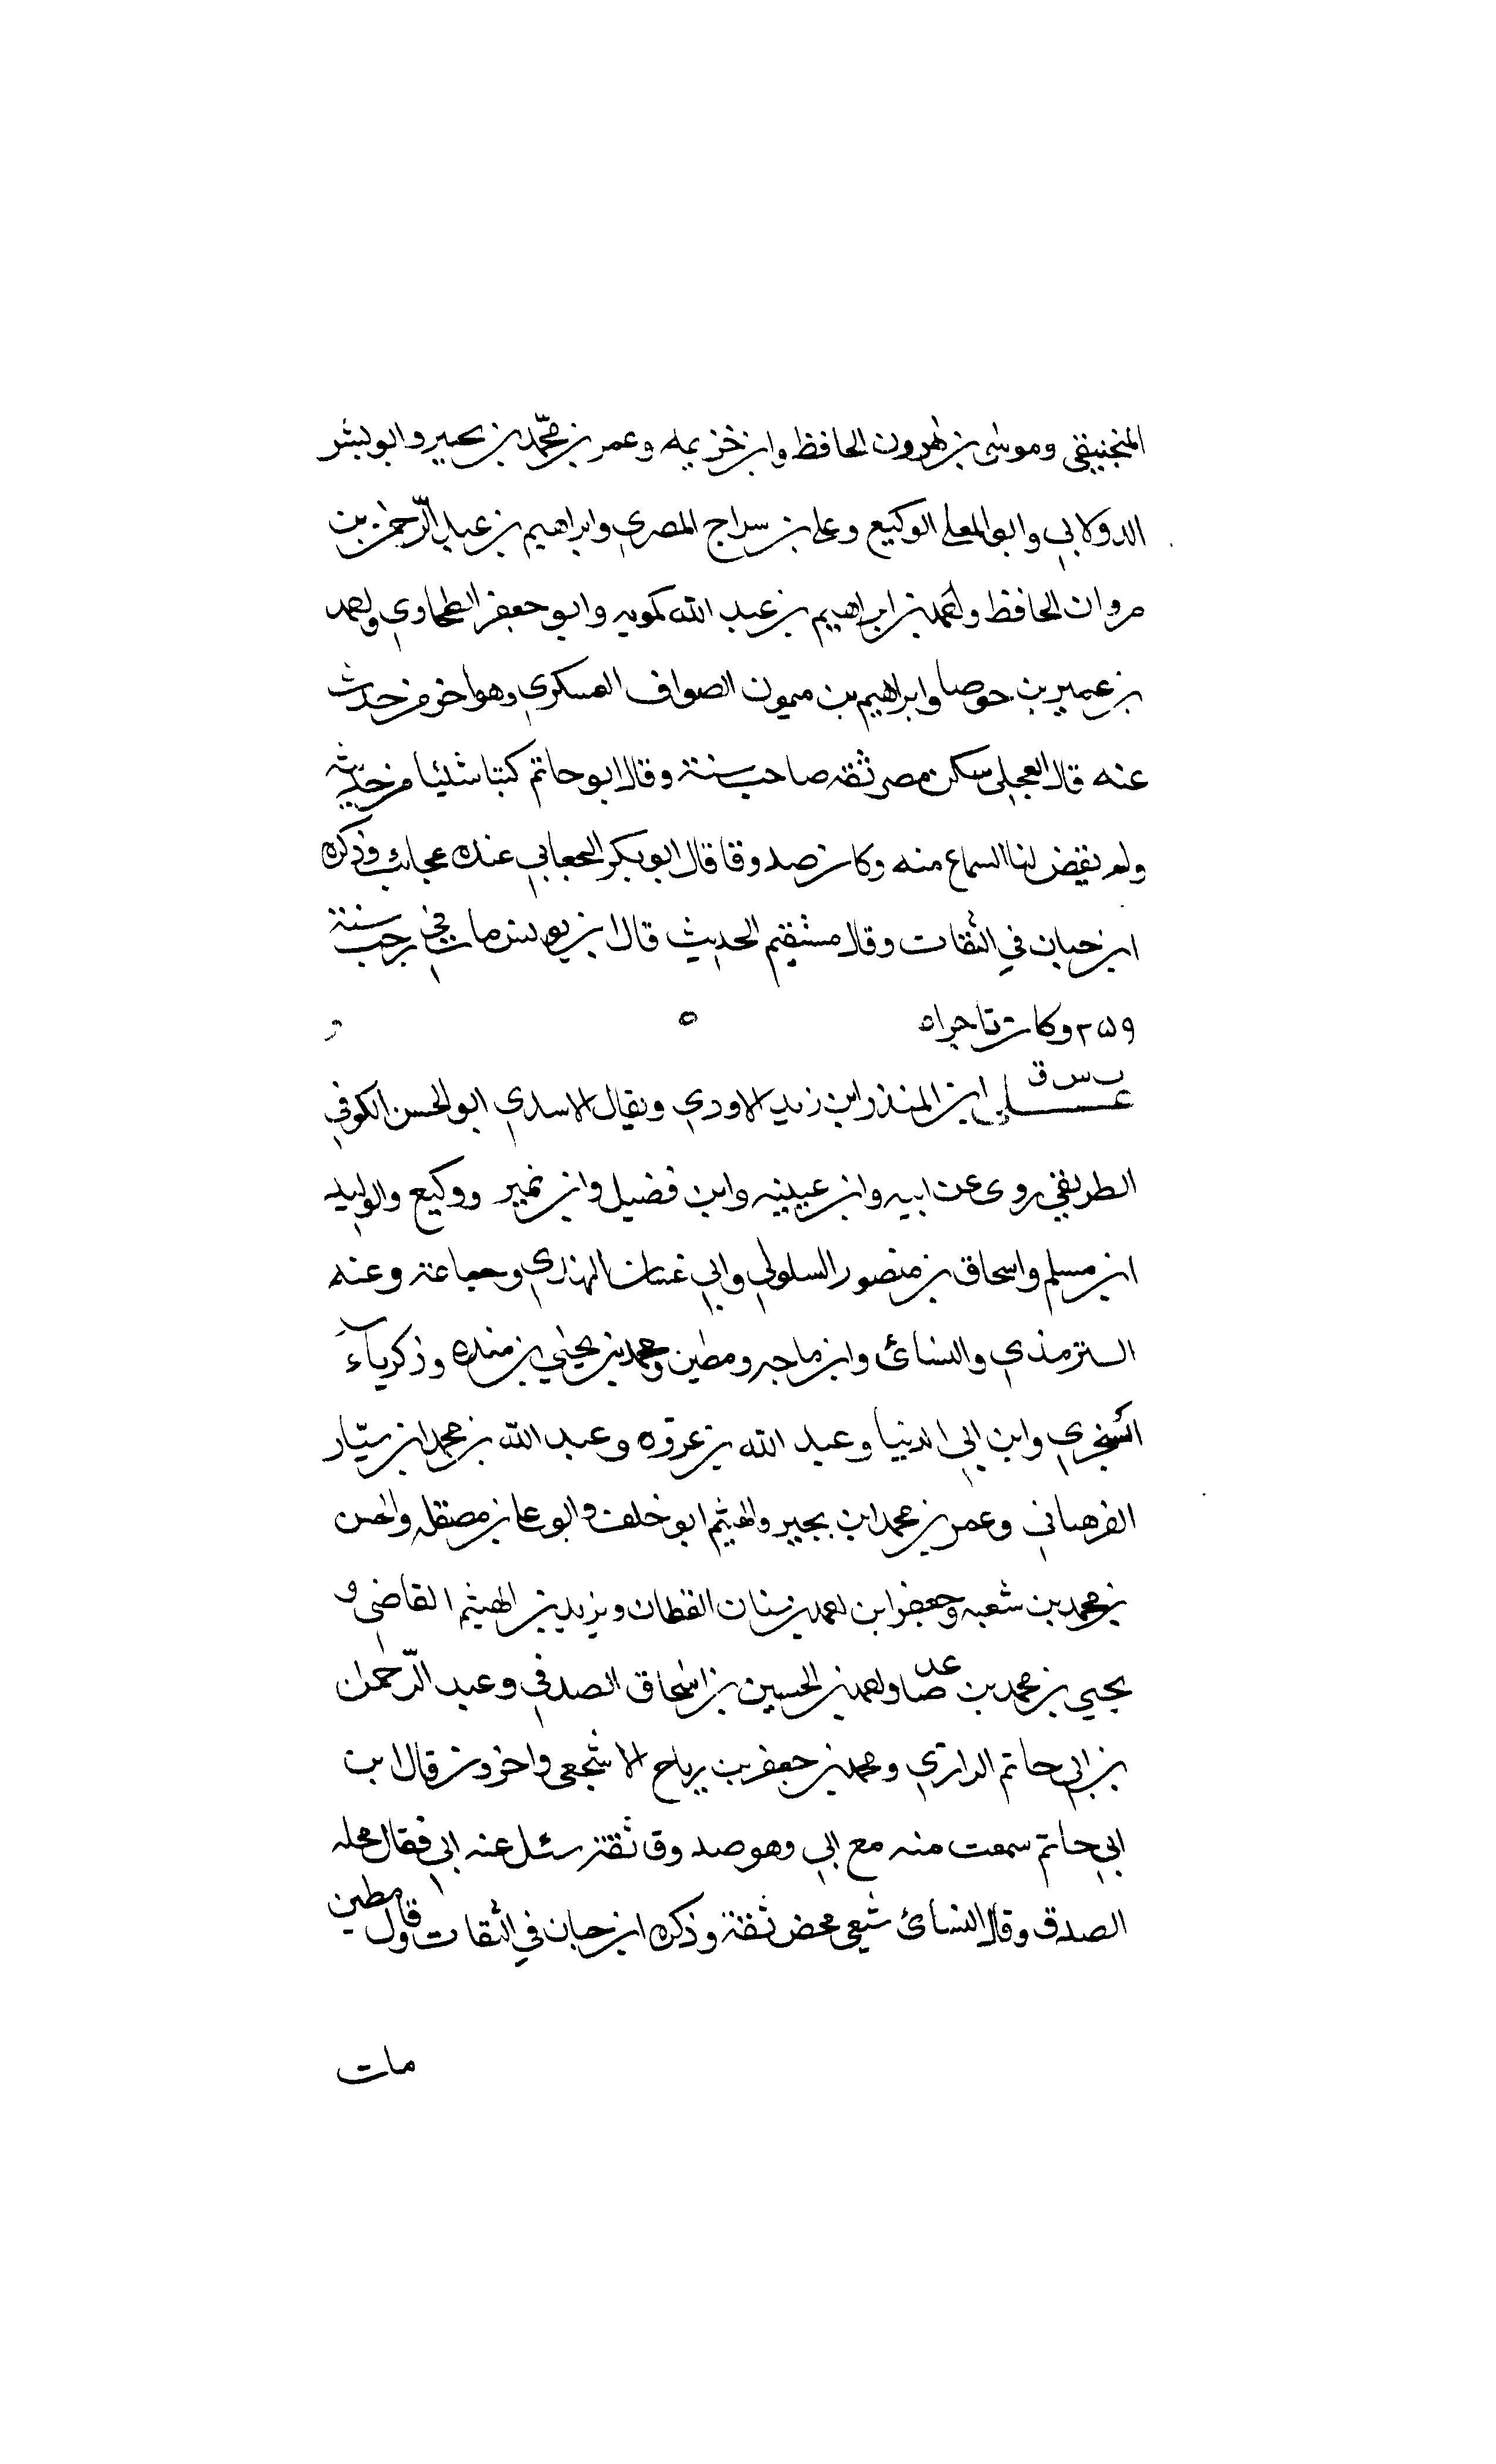 المنجنيقي وموسى بن هرون الحافظ وابن خزيمه وعمر بن محمد بن بجير وابو بشر
الدولابي وابو المعلى الوكيع وعلي بن سراج المصري وابراهيم بن عبد الرحمن بن
مروان الحافظ واحمد بن ابراهيم بن عبد الله كمويه وابو جعفر الطحاوي واحمد
بن عمير بن حوصا وابراهيم بن ميمون الصواف العسكري وهو اخر من حدث
عنه قال العجلى سكن مصر ثقه صاحب سنة وقال ابو حاتم كتبنا شيئا من حديثه
ولم نقيض لنا السماع منه وكان صدوقا قال ابو بكر الجعابي عنده عجائب وذكره
ابن حبان في الثقات وقال مستقيم الحديث قال ابن يونس مات في رجب سنة
٢٥٩ وكان تاجراه ه
ت س ق
علي ابن المنذر ابن زيد الاودي ويقال الاسدي ابو الحسن الكوفي
الطريقي روى عن ابيه وابن عيينه وابن فضيل وابن نمير ووكيع والوليد
ابن مسلم واسحاق بن منصور السلولي وابي غسان النهدي وجماعة وعنه
الترمذي والنسائ وابن ماجه ومطين ومحمد بن يحيي بن منده وزكرياء
السجزي وابن ابي الدنيا وعبد الله بن عروه وعبد الله بن محمد ابن سيار
الفرهياني وعمر بن محمد ابن بجير والهيثم ابو خلف وابو علي بن مصقله والحسن
بن محمد بن شعبه وجعفر ابن احمد بن سنان القطان ويزيد بن الهيثم القاضى و
يحيي بن محمد بن صاعد واحمد بن الحسين بن اسحاق الصدفي وعبد الرحمان
بن ابي حاتم الرازي ومحمد بن جعفر بن رياح الاشجعى واخرون قال ابن
ابي حاتم سمعت منه مع ابي وهو صدوق ثقة سئل عنه ابي فقال محله
الصدق وقال النسائ شيعى محض ثقة وذكره ابن حبان في الثقات وقال مطين
مات